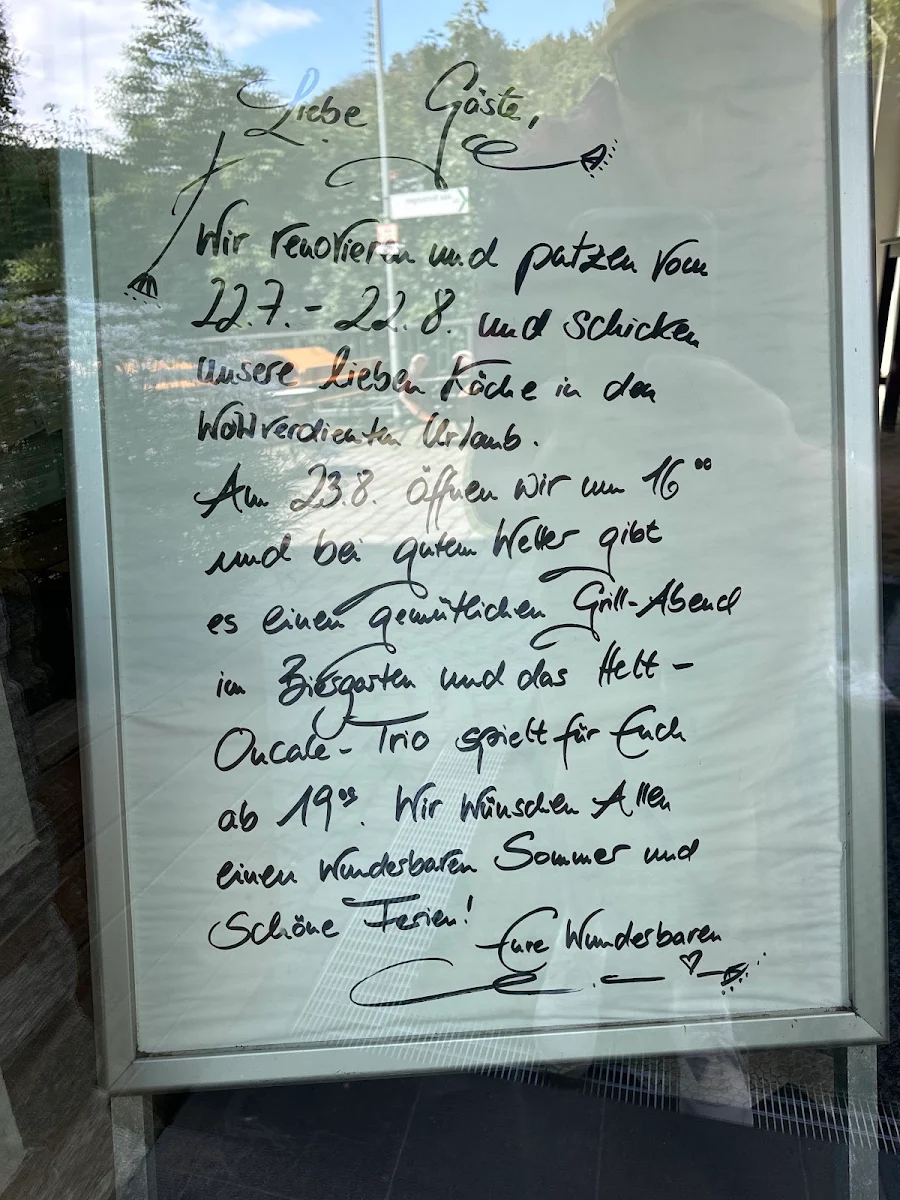 Liebe Gäste,
Wir renovieren und putzen vom
22.7. - 22.8. und schicken
unsere lieben Köche in den
Wohlverdienten Urlaub.
Am 23.8. öffnen wir um 16⁰⁰
und bei gutem Wetter gibt
es einen gemütlichen Grill-Abend
im Biergarten und das Hett-
Oncale-Trio spielt für Euch
ab 19⁰⁰. Wir Wünschen Allen
einen Wunderbaren Sommer und
Schöne Ferien!
Eure Wunderbaren